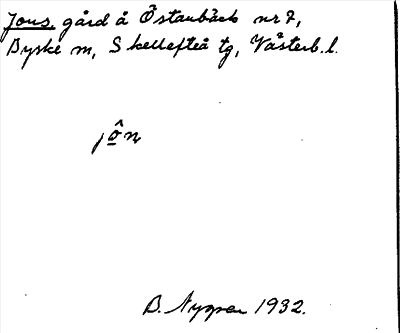 Jons, gård å Östanbäck nr 7,
Byske m, Skellefteå tg, Västerb. l.
jô̲n
B. Nygren 1932.